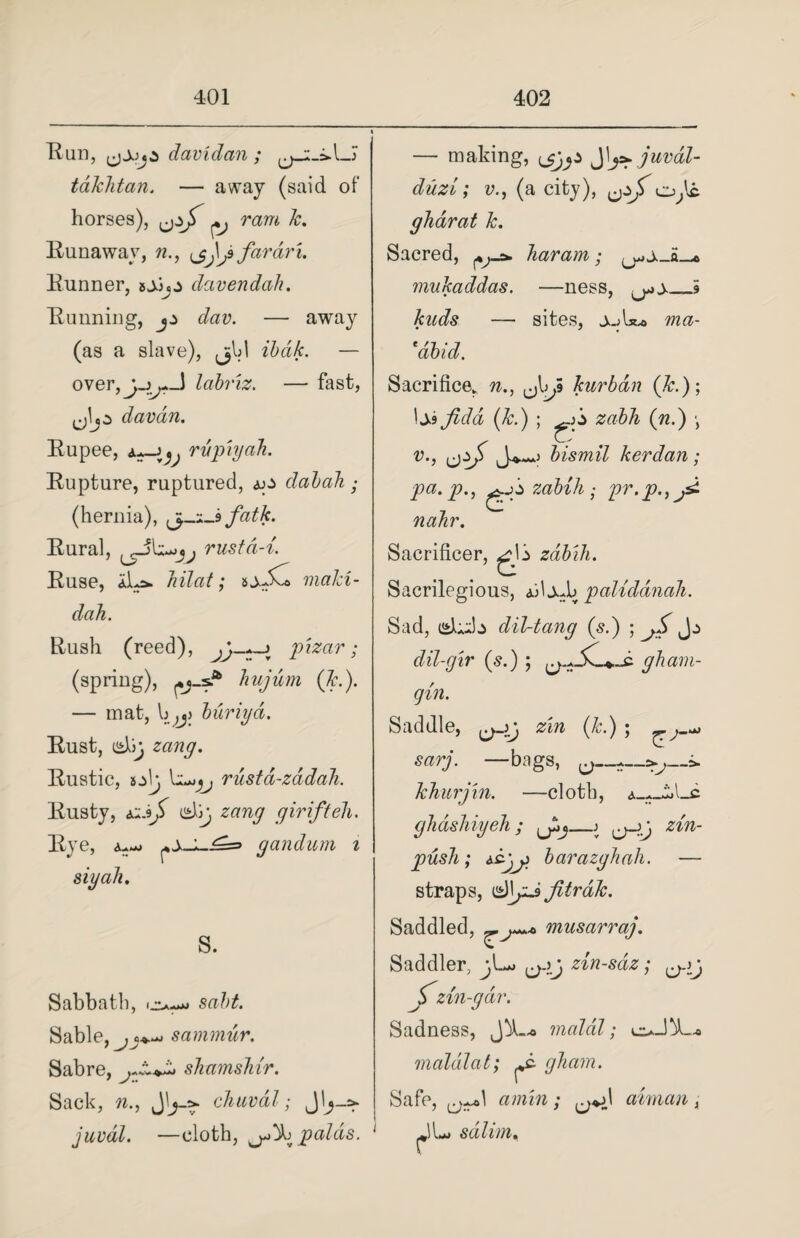 401
402
Run, دویدن davīdan ; تاختن
tākhtan. — away (said of
horses), رم کردن ram k.
Runaway, n., فراری farārī.
Runner, دونده davendah.
Running, دو dav. — away
(as a slave), اباق ibāk. —
over, لبریز labrīz. — fast,
دوان davān.
Rupee, روپیه rūpīyah.
Rupture, ruptured, دبه dabah ;
(hernia), فتق fatk.
Rural, روستائی rustā-ī.
Ruse, حیلة hīlat ; مکیده makī-
dah.
Rush (reed), پیزر pīzar ;
(spring), هجوم hujūm (k.).
— mat, بوریا būriyā.
Rust, زنگ zang.
Rustic, روستا زاده rūstā-zādah.
Rusty, زنگ گرفته zang girifteh.
Rye, گندم سیه gandum i
siyah.
S.
Sabbath, سبت sabt.
Sable, سمور sammūr.
Sabre, شمشیر shamshīr.
Sack, n., چوال chuvāl ; جوال
juvāl. —cloth, پلاس palās.
— making, جوال دوزی juvāl-
dūzī ; v., (a city), غارت کردن
ghārat k.
Sacred, حرم haram ; مقدس
mukaddas. —ness, قدس
kuds — sites, معابد ma-
'ābid.
Sacrifice, n., قربان kurbān (k.) ;
فدا fidā (k.) ; ذبح zabh (n.) ;
v., بسمل کردن bismil kerdan ;
pa. p., ذبیح zabīh ; pr. p., نحر
nahr.
Sacrificer, ذابح zābih.
Sacrilegious, پلیدانه palīdānah.
Sad, دلتنگ dil-tang (s.) ; دل گیر
dil-gīr (s.) ; غمگین gham-
gīn.
Saddle, زین zīn (k.) ; سرج
sarj. —bags, خرجین
khurjīn. —cloth, غاشیه
ghāshiyeh ; زین پوش zīn-
pūsh ; برزغه barazghah. —
straps, فتراك fitrāk.
Saddled, مسرج musarraj.
Saddler, زین ساز zīn-sāz ; زین
گر zīn-gār.
Sadness, ملال malāl ; ملالت
malālat ; غم gham.
Safe, امین amīn ; ایمن aiman ;
سالم sālim.